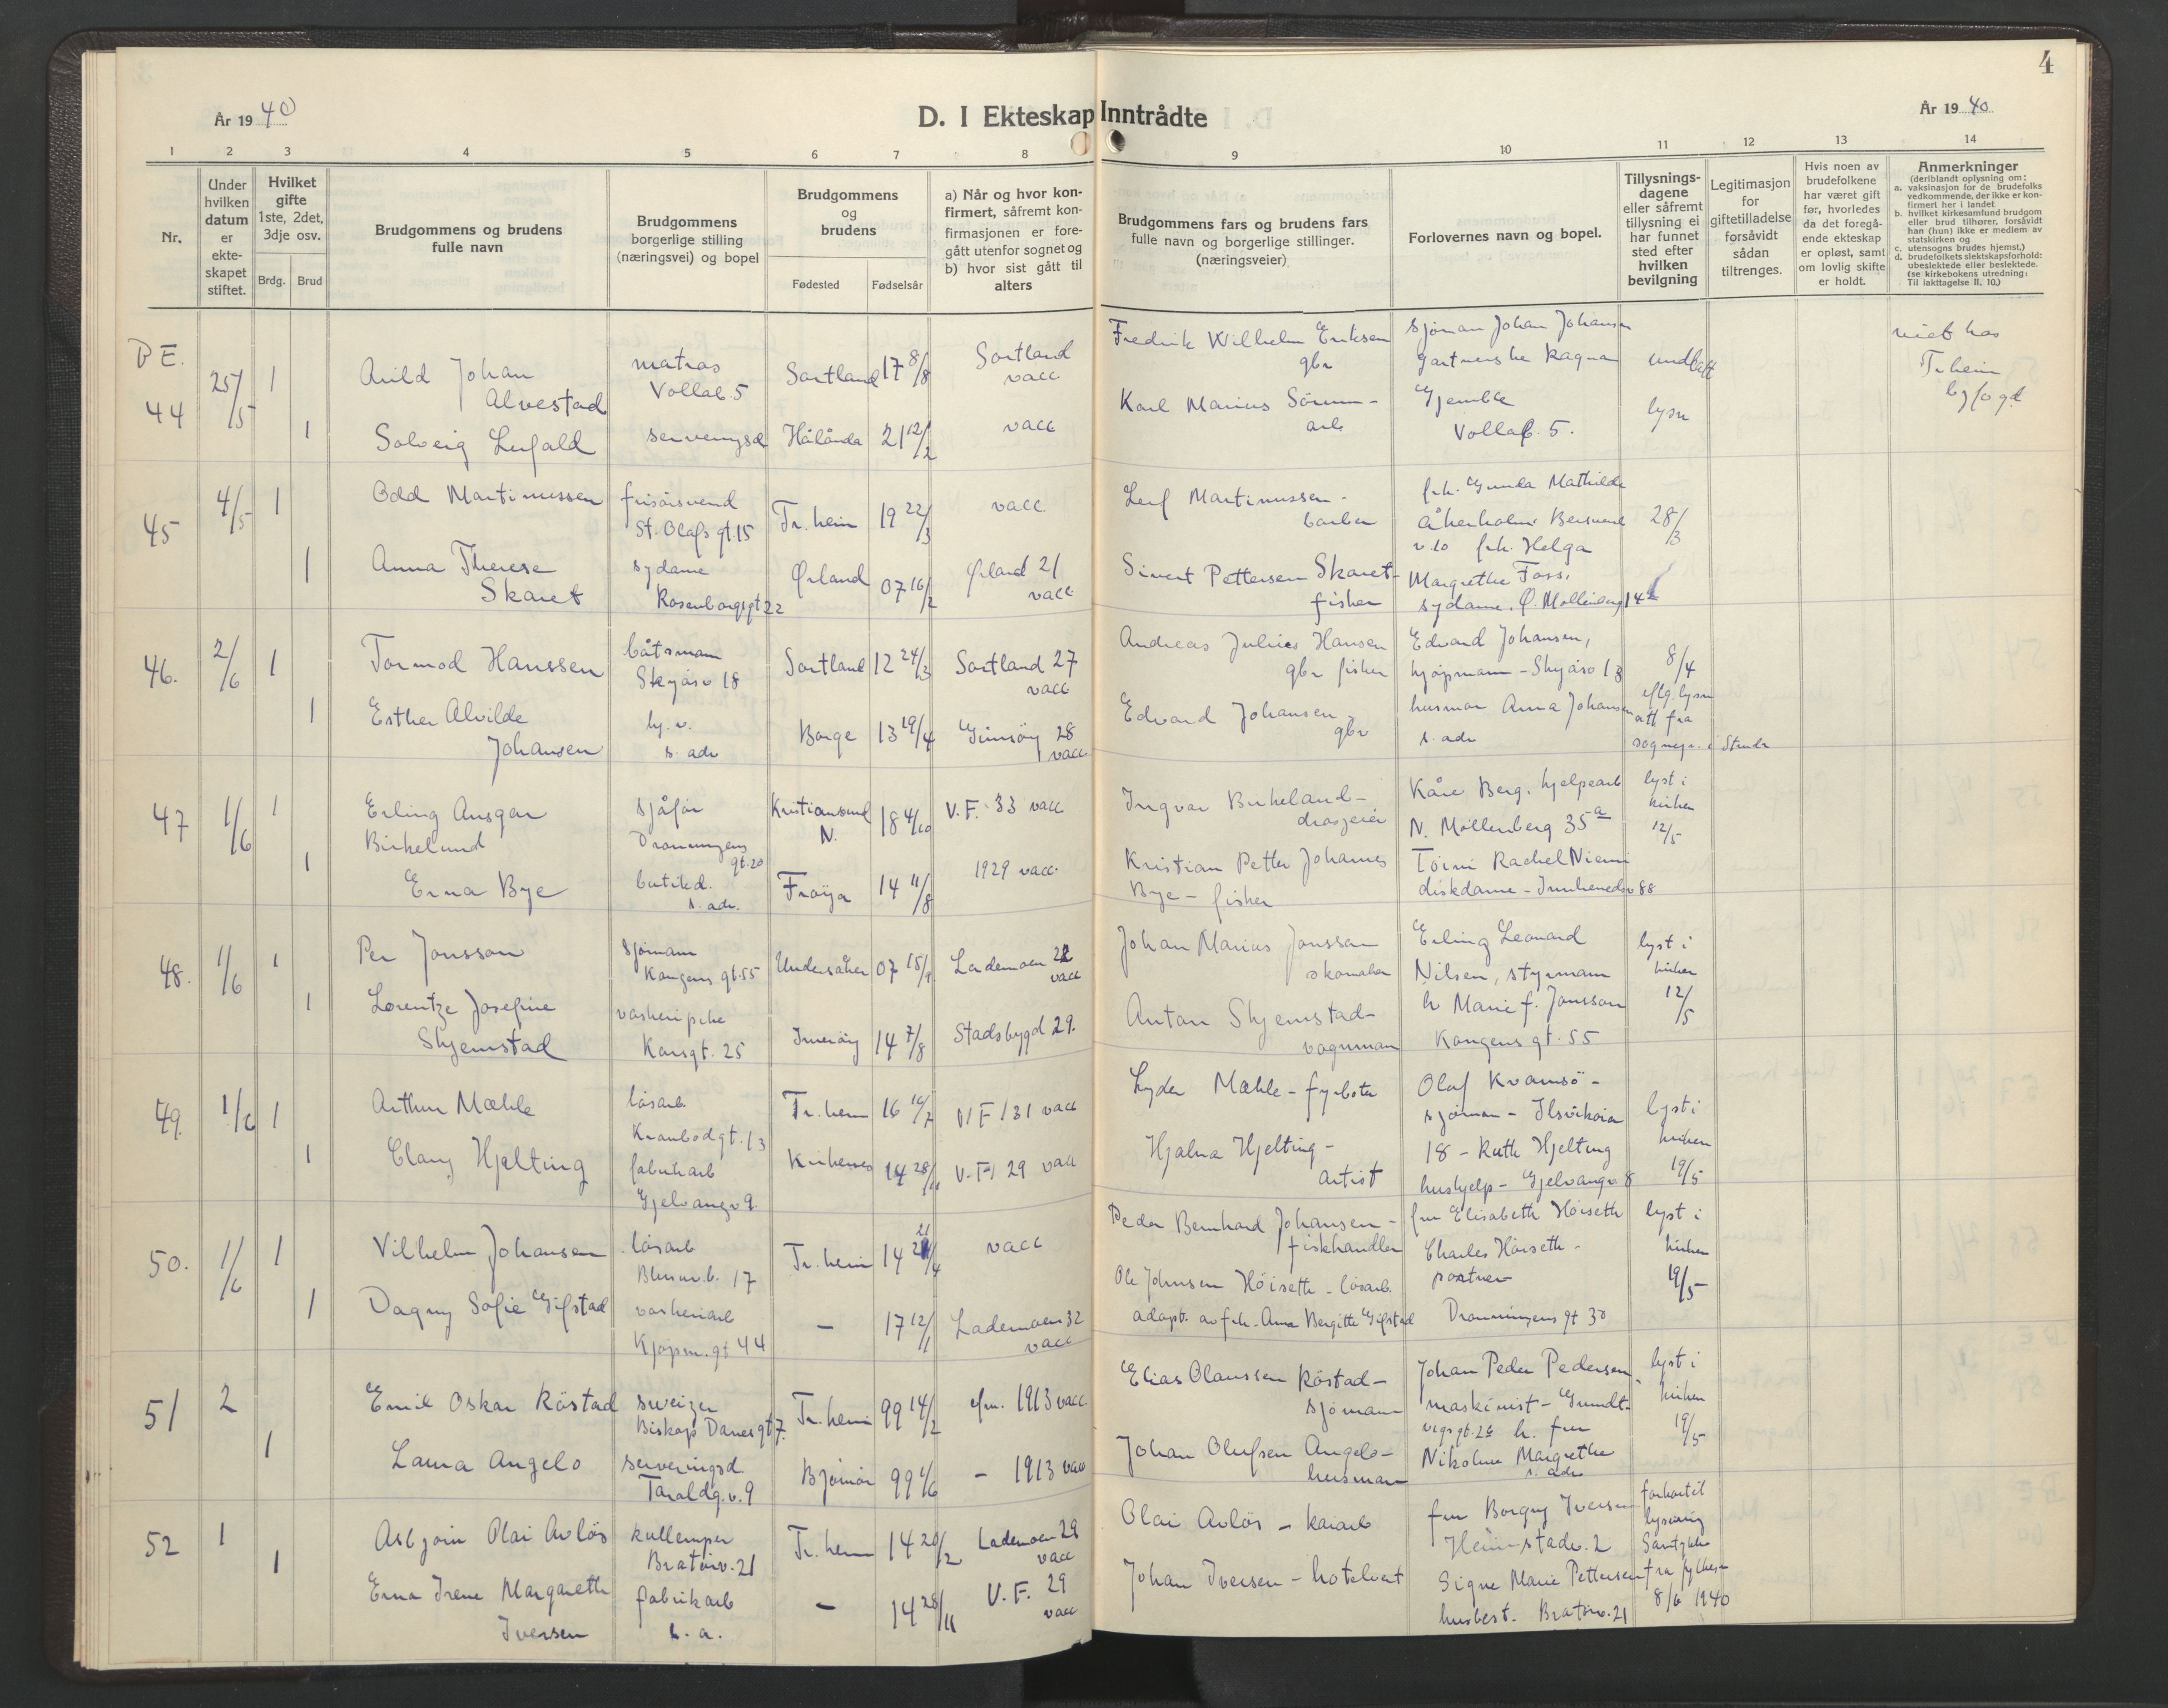 4
År 1940
D. I Ekteskap Inntrådte
År 1940
1 2 3 4 5 6 7 8 9 10 11 12 13 14
Nr.
Under hvilken datum er ekte-skapet stiftet.
Hvilket gifte 1ste, 2det, 3dje osv.
Brdg. Brud
Brudgommens og brudens fulle navn
Brudgommens borgerlige stilling (næringsvei) og bopel
Brudgommens og brudens
Fødested Fødselsår
a) Når og hvor kon-firmert, såfremt kon-firmasjonen er fore-gått utenfor sognet og b) hvor sist gått til alters
Brudgommens fars og brudens fars fulle navn og borgerlige stillinger. (næringsveier)
Forlovernes navn og bopel.
Tillysnings-dagene eller såfremt tillysning ei har funnet sted efter hvilken bevilgning
Legitimasjon for giftetilladelse forsåvidt sådan tiltrenges.
Hvis noen av brudefolkene har været gift før, hvorledes da det foregå-ende ekteskap er opløst, samt om lovlig skifte er holdt.
Anmerkninger
(deriblandt oplysning om:
a. vaksinasjon for de brudefolks vedkommende, der ikke er kon-firmert her i landet
b. hvilket kirkesamfund brudgom eller brud tilhører, forsåvidt han (hun) ikke er medlem av statskirken og
c. utensogns brudes hjemst.)
d. brudefolkets slektskapsforhold: ubeslektede eller beslektede.
(se kirkebokens utredning: Til iakttagelse II. 10.)
BE. 44 25/5 1 Arild Johan Alvestad matros Vollab. 5 Sortland 17 8/8 Sortland vacc Fredrik Wilhelm Eriksen gbr sjöman Johan Johansen
viet hos Tr.heim byfogd
1 Solveig 21 12/2 vacc Karl Marius arb Gjemble Vollab. 5. lysn
45 4/5 1 Odd Martinussen frisörsvend St. Olafs gt. 15 Tr. heim 19 22/3 vacc Leif Martinussen - barber frk. Gunda Mathilde 28/3
1 Anna Therese Skaret sydame Rosenborggt 22 Ørland 07 16/2 Ørland 21 vacc Sivert Pettersen Skaret - fisker v. 10 frk. Helga Margrethe Foss, sydame. Ø. Möllenberg 14
46. 2/6 1 Tormod Hanssen båtsmann Skyåsv 18 Sortland 12 24/3 Sortland 27 vacc Andreas Julius Hansen gbr fisker Edvard Johansen, kjöpmann - Skyåsv 18 8/4
1 Esther Alvilde Johansen s. adr Borge 13 19/4 Gimsöy 28 vacc Edvard Johansen - gbr husmor Anna Johansen s. adr iflg. lysn att fra sognepr. i
47 1/6 1 Erling Ansgar Birkelund sjåför Dronningens gt. 20 Kristiansund N. 18 4/10 V. F. 33 vacc Ingvar Birkeland - drosjeeier Kåre Berg. hjelpearb N. Möllenberg 35 a lyst i kirken 12/5
1 Erna Bye butikd. s. adr. Fröya 14 11/8 1929 vacc. Kristian Petter Johannes Bye - fisker Toini Rachel Niemi diskdame - Innherredsv 88
48. 1/6 1 Per Jonsson sjömann Kongens gt. 55 Undersåker 07 Lademoen 22 vacc Johan Marius Jonsson skomaker Erling Leonard Nilsen, styrmann lyst i kirken 12/5
1 Lorentze Josefine Skjemstad Inneröy 14 7/8 Stadsbygd 29. Anton Skjemstad - vognman h Marie f. Jonsson Kongens gt. 55
49. 1/6 1 Arthur Mæhle lösarb. Kranbodgt. 13 Tr. heim 16 VF 131 vacc Lyder Mæhle - fyrböter Olaf Kvamsö - sjöman - Ilsvikveien lyst i kirken 19/5
1 Hjelting fabrikarb Gjelvangv 9. Kirkenes 14 V. F. 29 vacc Hjalmar Hjelting - Artist 18 - Ruth Hjelting hushjelp - Gjelvangv 8
50. 1/6 1 Vilhelm Johansen lösarb 17 Tr. heim 14 vacc Peder Bernhard Johansen - fiskhandler fru Elisabeth Höiseth lyst i kirken 19/5
1 Dagny Sofie Gifstad vaskeriarb Kjöpm. gt 44 - 17 12/1 Lademoen 32 vacc Ole Johnsen Höiseth - lösarb. adopt. av frk. Anna Bergitte Gifstad Charles Höiseth - portner Dronningens gt 30
51 2 Emil Oskar Röstad sveizer Biskop Daresgt 7. Tr. heim 99 14/2 1913 vacc. Elias Olaussen Röstad - sjömann Johan Peder Pedersen maskinist - Grundt- lyst i kirken 19/5
1 Laura Angelo serveringsd Taraldg. v. 9 Björnör 99 - 1913 vacc Johan Olufsen Angelo - husman vigsgt. 2 h. fru Nikoline Margrethe s. adr
52 1 Asbjörn Olai Avlös kullemper Bratörv. 21 Tr. heim 14 20/2 Lademoen 29 vacc Olai Avlös - kaiarb fru Borgny Iversen Heimstadv. 2 lysning Samtykke
1 Erna Irene Margareth Iversen fabrikarb s. a. - 14 28/11 V. F. 29 vacc Johan Iversen - hotelvert Signe Marie Pettersen husbest. Bratörv. 21 fra 8/6 1940